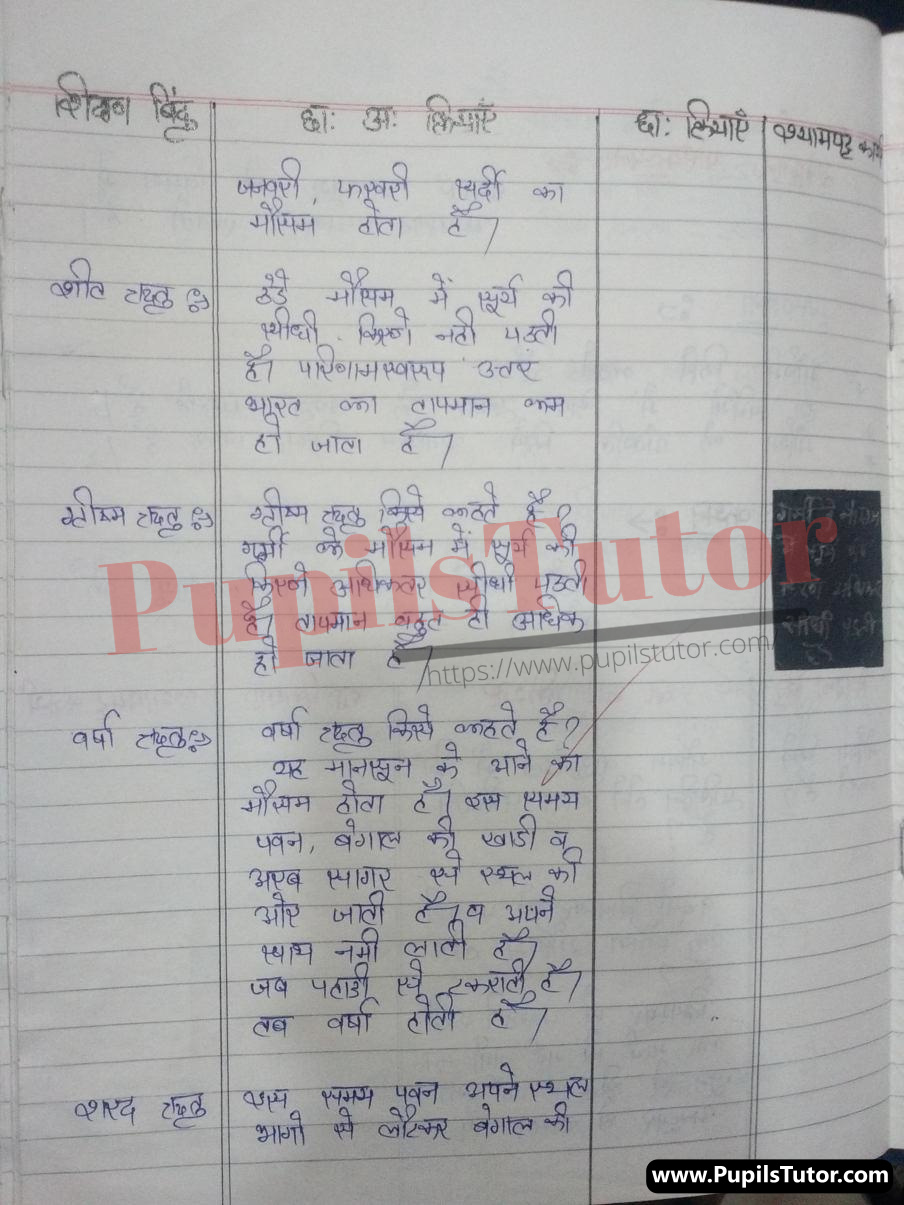 शिक्षण बिंदु छा: अ: क्रियाएँ छा: क्रियाएँ श्यामपट्ट कार्य
जनवरी, फरवरी सर्दी का
मौसम होता है।
शीत ऋतु :-> ठंडे मौसम में सूर्य की
सीधी किरणे नही पडती
है। परिणामस्वरूप उत्तर
भारत का तापमान कम
हो जाता है।
ग्रीष्म ऋतु :-> ग्रीष्म ऋतु किसे कहते है?
गर्मी के मौसम में सूर्य की
किरणे अधिकतर सीधी पडती
है। तापमान बहुत ही अधिक
हो जाता है।
गर्मी के मौसम
में सूर्य की
किरणे अधिकतर
सीधी पडती
है
PupilsTutor
https://www.pupilstutor.com/
वर्षा ऋतु :-> वर्षा ऋतु किसे कहते है?
यह मानसून के आने का
मौसम होता है। इस समय
पवन, बंगाल की खाडी व
अरब सागर से स्थल की
ओर जाती है। व अपने
साथ नमी लाती है।
जब पहाडी से टकराती है।
तब वर्षा होती है।
शरद ऋतु इस समय पवन अपने स्थल
भागो से लौटकर बंगाल की
www.PupilsTutor.com